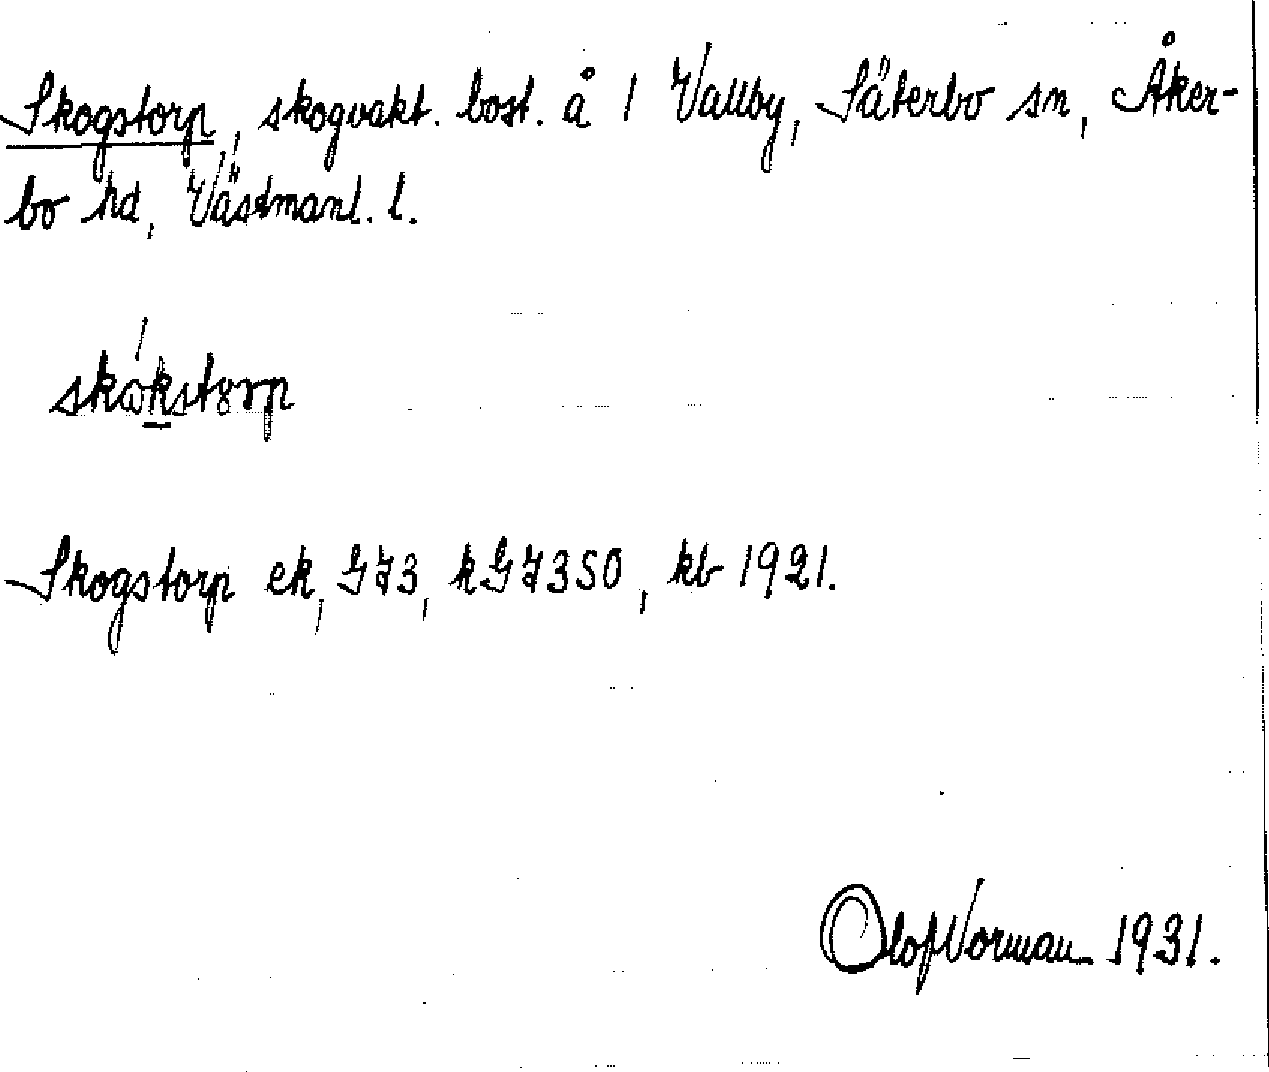 Skogstorp, skogvakt. bost. å 1 Vallby, Säterbo sn, Åker-
bo hd, Västmanl. l.
skωkstȣrp
Skogstorp ek, GJ3, kGJ350, kb 1921.
Olof Norman 1931.